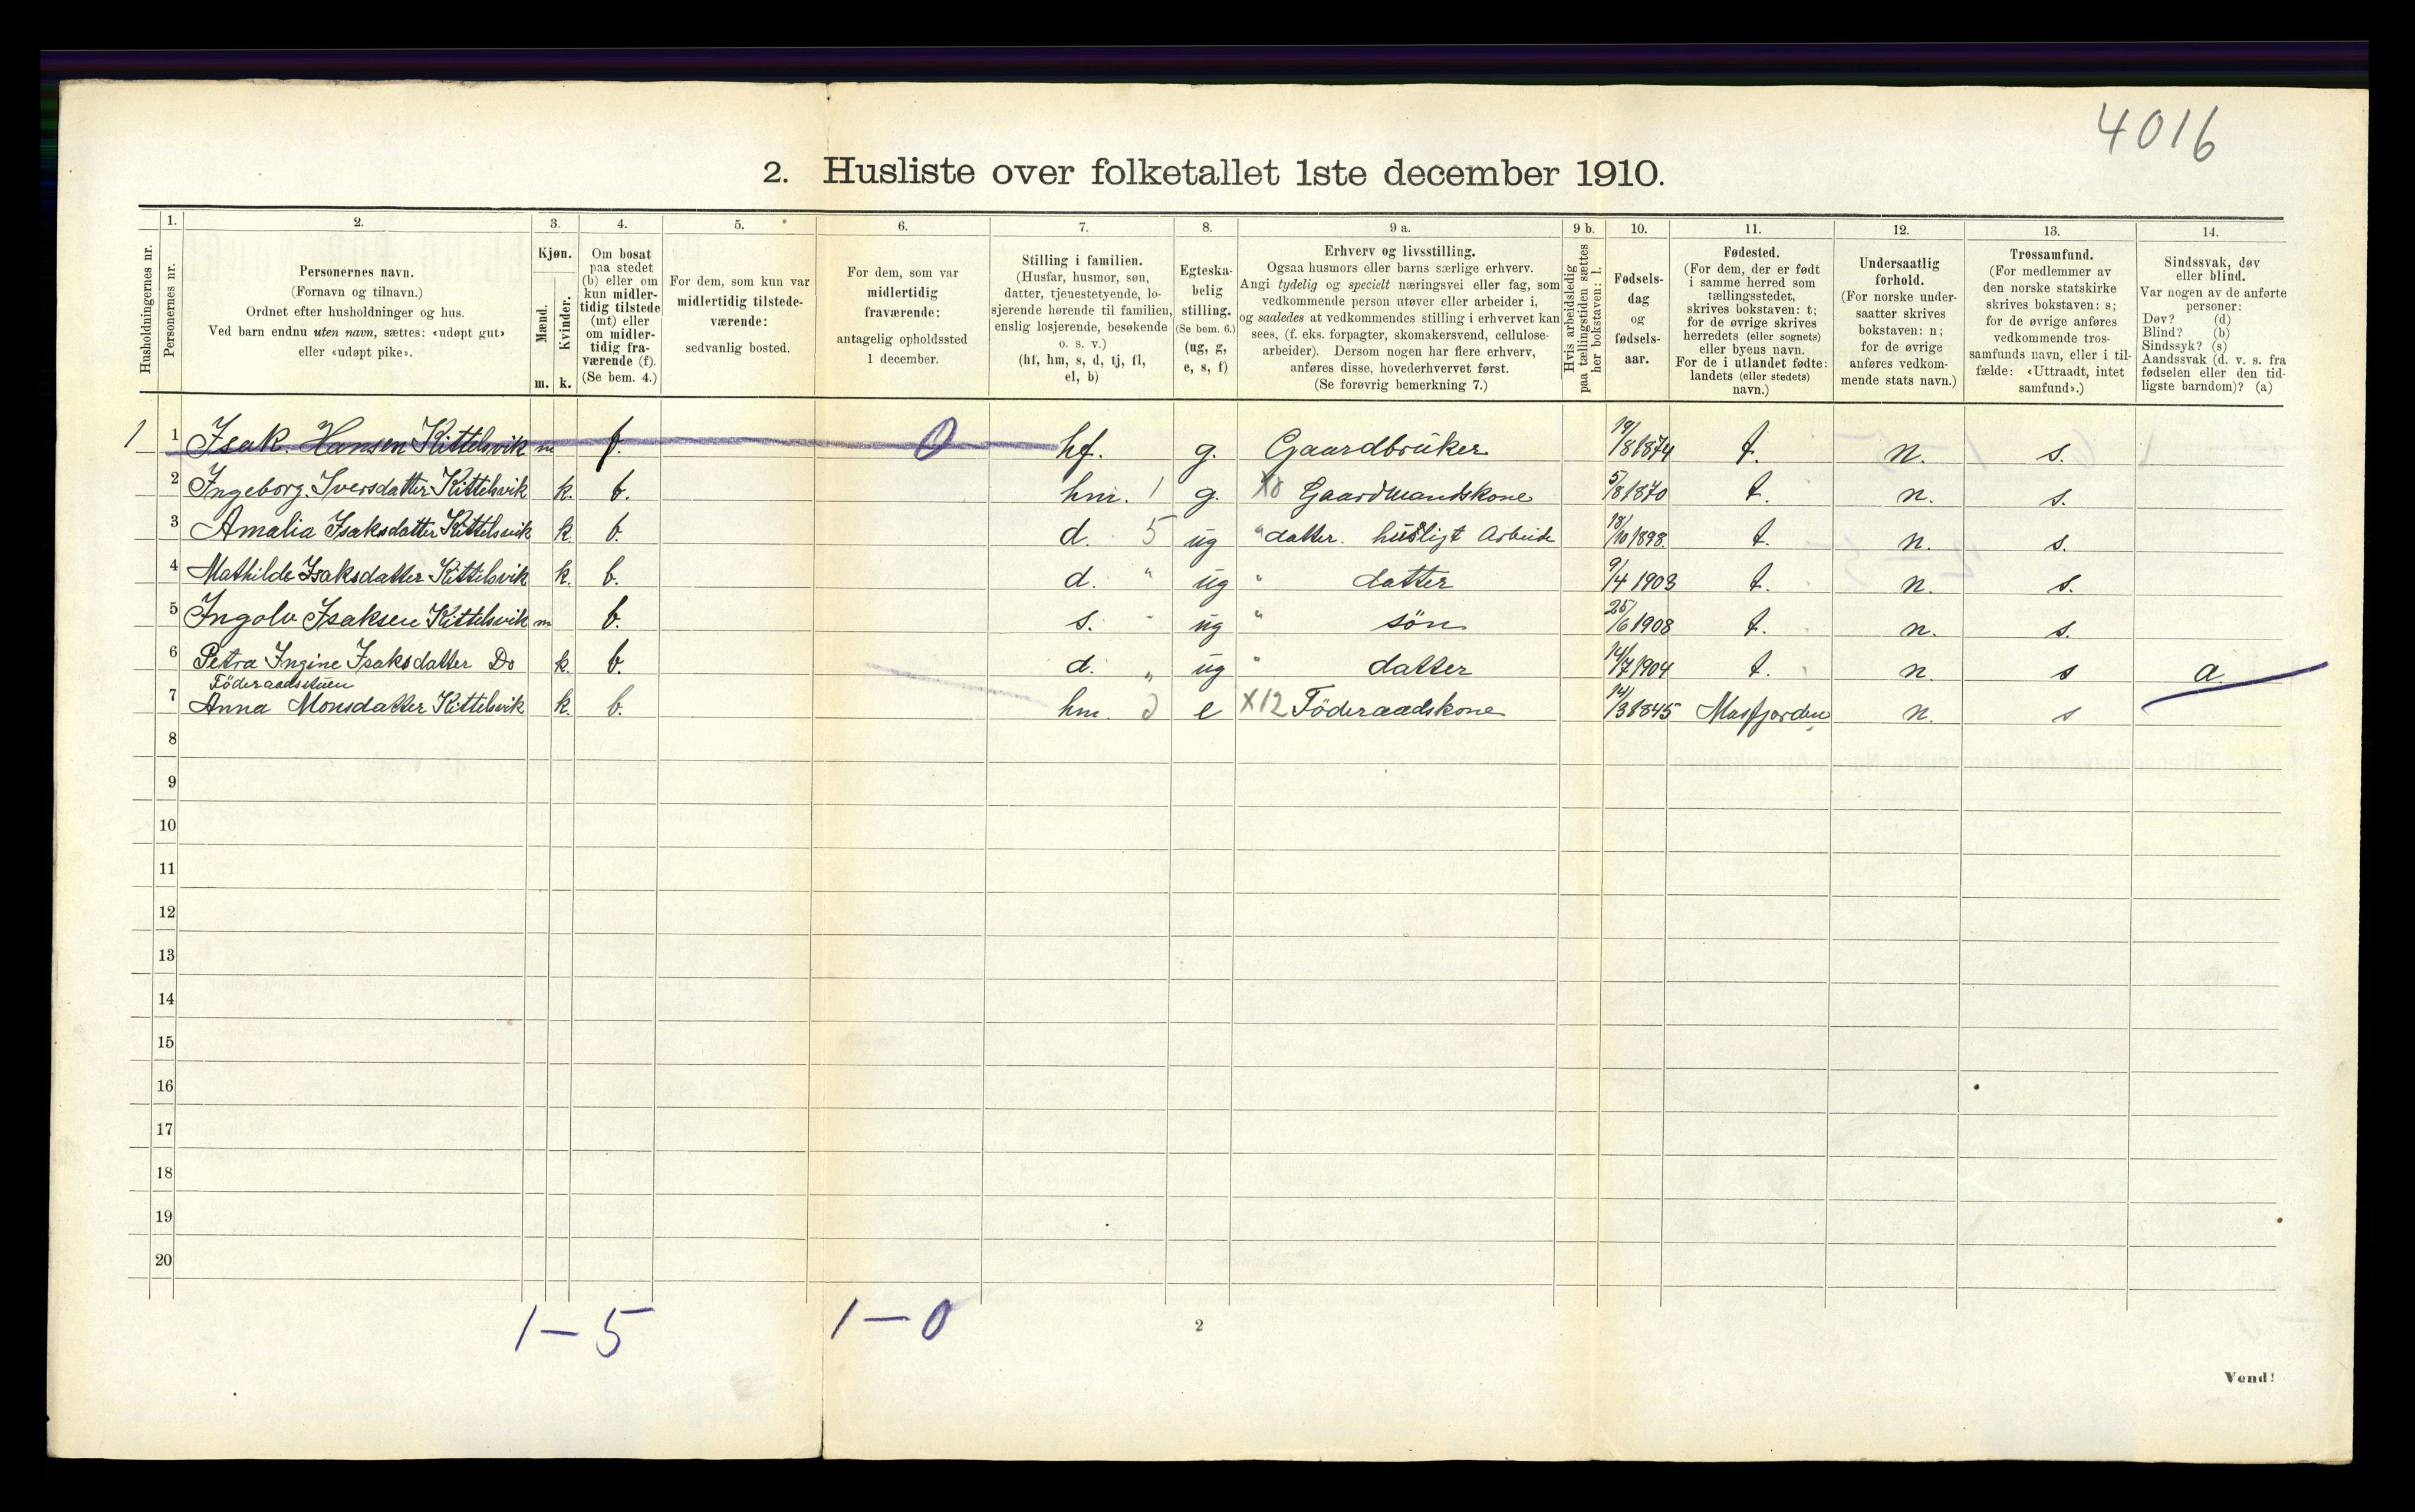 4016
2. Husliste over folketallet 1ste december 1910.
Husholdningernes nr.
1.
Personernes nr.
2.
Personernes navn.
(Fornavn og tilnavn.)
Ordnet efter husholdninger og hus.
Ved barn endnu uten navn, sættes: «udøpt gut»
eller «udøpt pike».
3.
Kjøn.
Mænd.
Kvinder.
m. k.
4.
Om bosat
paa stedet
(b) eller om
kun midler-
tidig tilstede
(mt) eller
om midler-
tidig fra-
værende (f).
(Se bem. 4.)
5.
For dem, som kun var
midlertidig tilstede-
værende:
sedvanlig bosted.
6.
For dem, som var
midlertidig
fraværende:
antagelig opholdssted
1 december.
7.
Stilling i familien.
(Husfar, husmor, søn,
datter, tjenestetyende, lo-
sjerende hørende til familien,
enslig losjerende, besøkende
o. s. v.)
(hf, hm, s, d, tj, fl,
el, b)
8.
Egteska-
belig
stilling.
(Se bem. 6.)
(ug, g,
e, s, f)
9 a.
Erhverv og livsstilling.
Ogsaa husmors eller barns særlige erhverv.
Angi tydelig og specielt næringsvei eller fag, som
vedkommende person utøver eller arbeider i,
og saaledes at vedkommendes stilling i erhvervet kan
sees, (f. eks. forpagter, skomakersvend, cellulose-
arbeider). Dersom nogen har flere erhverv,
anføres disse, hovederhvervet først.
(Se forøvrig bemerkning 7.)
9 b.
Hvis arbeidsledig
paa tællingstiden sættes
her bokstaven: l.
10.
Fødsels-
dag
og
fødsels-
aar.
11.
Fødested.
(For dem, der er født
i samme herred som
tællingsstedet,
skrives bokstaven: t;
for de øvrige skrives
herredets (eller sognets)
eller byens navn.
For de i utlandet fødte:
landets (eller stedets)
navn.)
12.
Undersaatlig
forhold.
(For norske under-
saatter skrives
bokstaven: n;
for de øvrige
anføres vedkom-
mende stats navn.)
13.
Trossamfund.
(For medlemmer av
den norske statskirke
skrives bokstaven: s;
for de øvrige anføres
vedkommende tros-
samfunds navn, eller i til-
fælde: «Uttraadt, intet
samfund».)
14.
Sindssvak, døv
eller blind.
Var nogen av de anførte
personer:
Døv? (d)
Blind? (b)
Sindssyk? (s)
Aandssvak (d. v. s. fra
fødselen eller den tid-
ligste barndom)? (a)
1 1 Isak. Hansen Kittelsvik m f. 0 hf. g. Gaardbruker 19/8 1874 t. n. s.
2 Ingeborg. Iversdatter Kittelsvik k. b. hm. 1 g. X0 Gaardmandskone 5/8 1870 t. n. s.
3 Amalia Isaksdatter Kittelsvik k. b. d. 5 ug " datter. husligt Arbeide 18/10 1898. t. n. s.
4 Mathilde Isaksdatter Kittelsvik k. b. d. " ug " datter 9/4 1903 t. n. s.
5 Ingolv Isaksen Kittelsvik m b. s. " ug " søn 25/6 1908 t. n. s.
6 Petra Ingine Isaksdatter Do k. b. d. " ug " datter 14/7 1904 t. n. s a.
Föderaadsstuen
7 Anna Monsdatter Kittelsvik k. b. hm. e X12 Föderaadskone 14/3 1845 Masfjorden n. s
8
9
10
11
12
13
14
15
16
17
18
19
20
1 — 5 1 — 0
2
Vend!